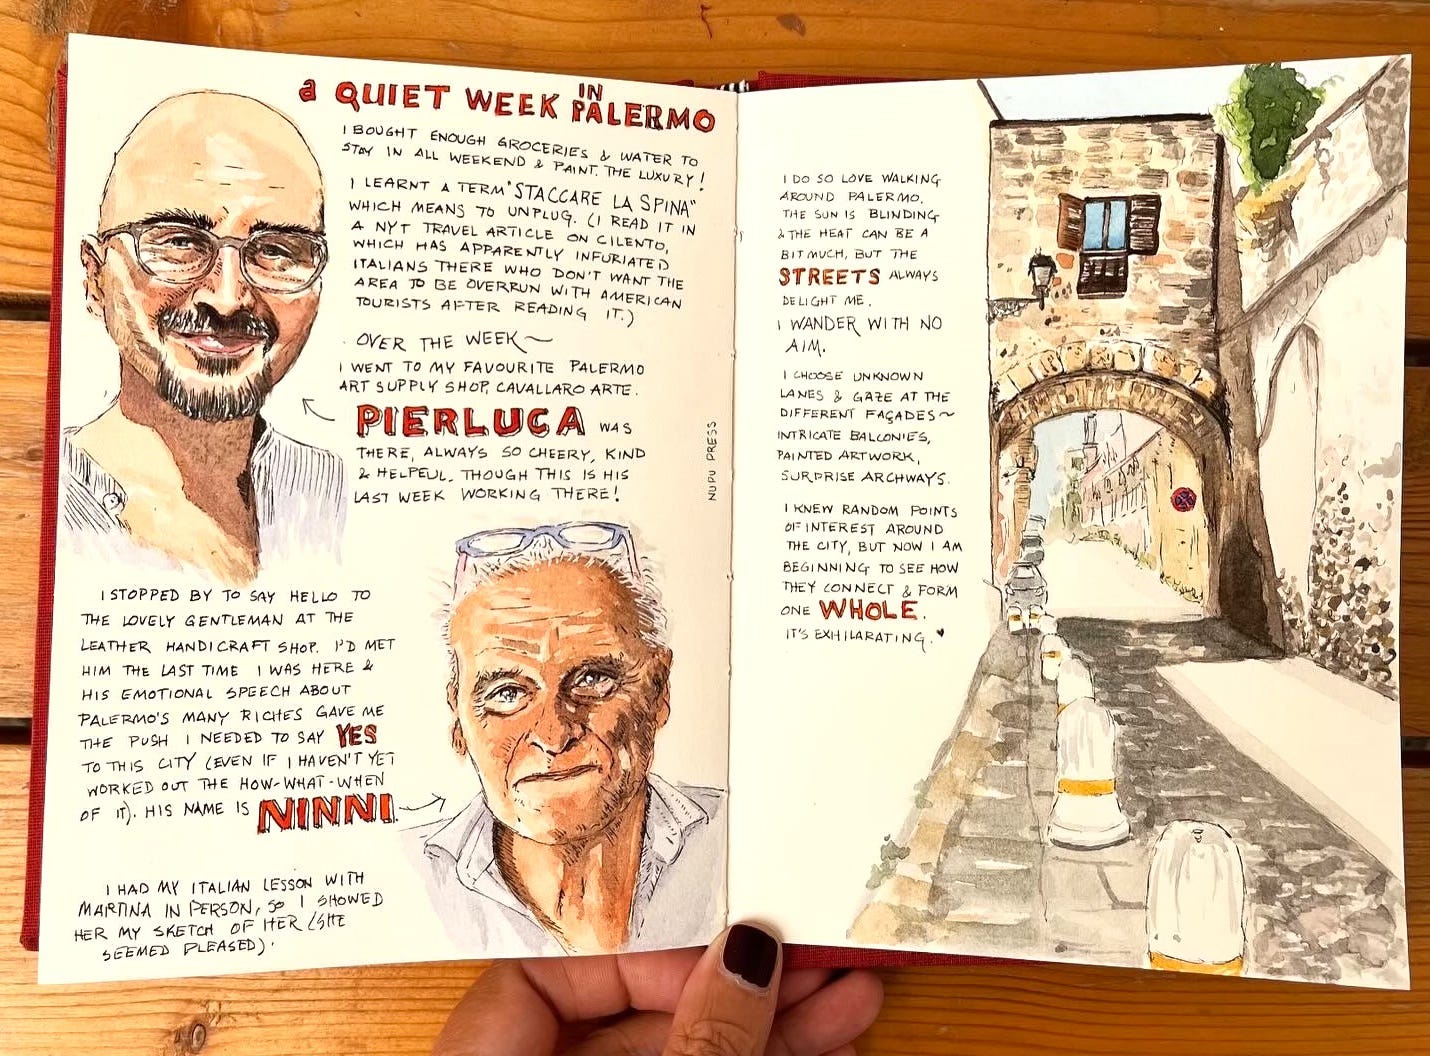 a QUIET WEEK IN PALERMO
I BOUGHT ENOUGH GROCERIES & WATER TO
STAY IN ALL WEEKEND & PAINT. THE LUXURY!
I LEARNT A TERM "STACCARE LA SPINA"
WHICH MEANS TO UNPLUG. (I READ IT IN
A NYT TRAVEL ARTICLE ON CILENTO,
WHICH HAS APPARENTLY INFURIATED
ITALIANS THERE WHO DON'T WANT THE
AREA TO BE OVERRUN WITH AMERICAN
TOURISTS AFTER READING IT.)
OVER THE WEEK~
I WENT TO MY FAVOURITE PALERMO
ART SUPPLY SHOP, CAVALLARO ARTE.
PIERLUCA WAS
THERE, ALWAYS SO CHEERY, KIND
& HELPFUL, THOUGH THIS IS HIS
LAST WEEK WORKING THERE!
NUPU PRESS
I STOPPED BY TO SAY HELLO TO
THE LOVELY GENTLEMAN AT THE
LEATHER HANDICRAFT SHOP. I'D MET
HIM THE LAST TIME I WAS HERE &
HIS EMOTIONAL SPEECH ABOUT
PALERMO'S MANY RICHES GAVE ME
THE PUSH I NEEDED TO SAY YES
TO THIS CITY (EVEN IF I HAVEN'T YET
WORKED OUT THE HOW-WHAT-WHEN
OF IT). HIS NAME IS NINNI
I HAD MY ITALIAN LESSON WITH
MARTINA IN PERSON, SO I SHOWED
HER MY SKETCH OF HER (SHE
SEEMED PLEASED).
I DO SO LOVE WALKING
AROUND PALERMO.
THE SUN IS BLINDING
& THE HEAT CAN BE A
BIT MUCH, BUT THE
STREETS ALWAYS
DELIGHT ME.
I WANDER WITH NO
AIM.
I CHOOSE UNKNOWN
LANES & GAZE AT THE
DIFFERENT FAÇADES~
INTRICATE BALCONIES,
PAINTED ARTWORK,
SURPRISE ARCHWAYS.
I KNEW RANDOM POINTS
OF INTEREST AROUND
THE CITY, BUT NOW I AM
BEGINNING TO SEE HOW
THEY CONNECT & FORM
ONE WHOLE.
IT'S EXHILARATING. ♥